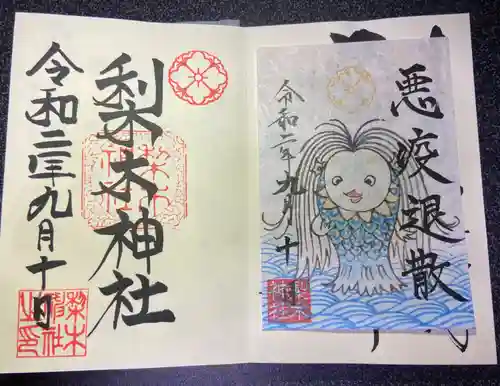 悪疫退散
令和二年九月十日
梨木
神社
梨木神社
梨木
神社
令和二年九月十日
梨木
神社
之印